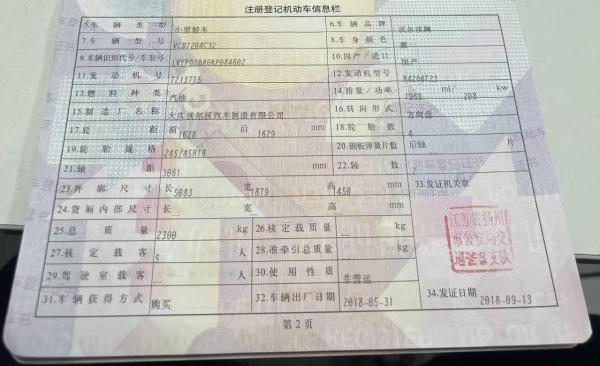 注册登记机动车信息栏
5.车辆类型 小型轿车 6.车辆品牌 沃尔沃牌
7.车辆型号 VCD7204C32 8.车身颜色 黑
9.车辆识别代号/车架号 10.国产/进口 国产
11.发动机号 7213775 12.发动机型号 B4204T23
13.燃料种类 汽油 14.排量/功率 1969 ml/ 208 kw
15.制造厂名称 大庆沃尔沃汽车制造有限公司 16.转向形式 方向盘
17.轮距 前 1628 后 1629 mm 18.轮胎数 4
19.轮胎规格 245/45R18 20.钢板弹簧片数 后轴 -- 片
21.轴距 3061 mm 22.轴数 2
23.外廓尺寸 长 5083 宽 1879 高 1450 mm 33.发证机关章
24.货厢内部尺寸 长 -- 宽 -- 高 -- mm
25.总质量 2300 kg 26.核定载质量 -- kg
27.核定载客 5 人 28.准牵引总质量 -- kg
29.驾驶室载客 -- 人 30.使用性质 非营运
31.车辆获得方式 购买 32.车辆出厂日期 2018-05-31 34.发证日期 2018-09-13
江苏省扬州
市公安局交
通警察支队
第2页